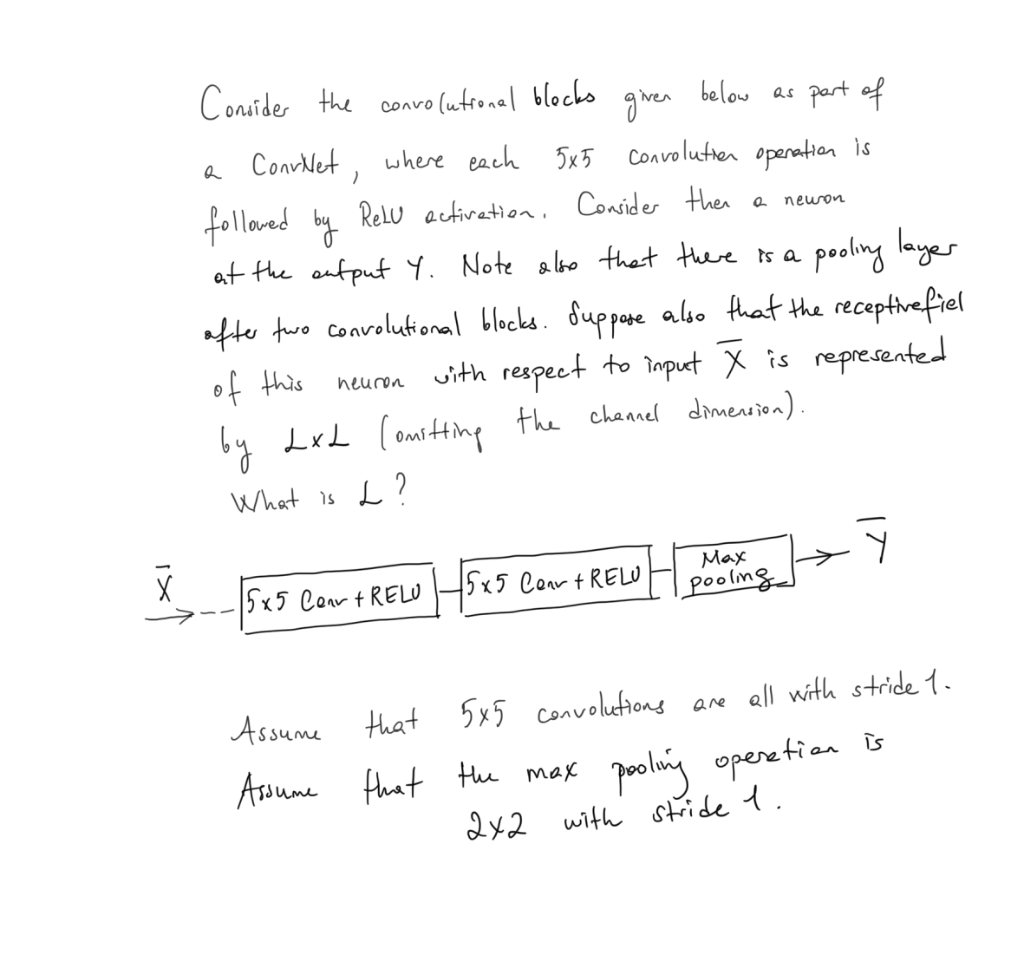 Consider the convolutional blocks given below as part of
a ConvNet, where each 5x5 convolution operation is
followed by ReLU activation. Consider then a neuron
at the output Y. Note also that there is a pooling layer
after two convolutional blocks. Suppose also that the receptivefiel
of this neuron with respect to input X̅ is represented
by LxL (omitting the channel dimension).
What is L?
X̅ 5x5 Conv + RELU 5x5 Conv + RELU Max pooling Y̅
Assume that 5x5 convolutions are all with stride 1.
Assume that the max pooling operation is
2x2 with stride 1.